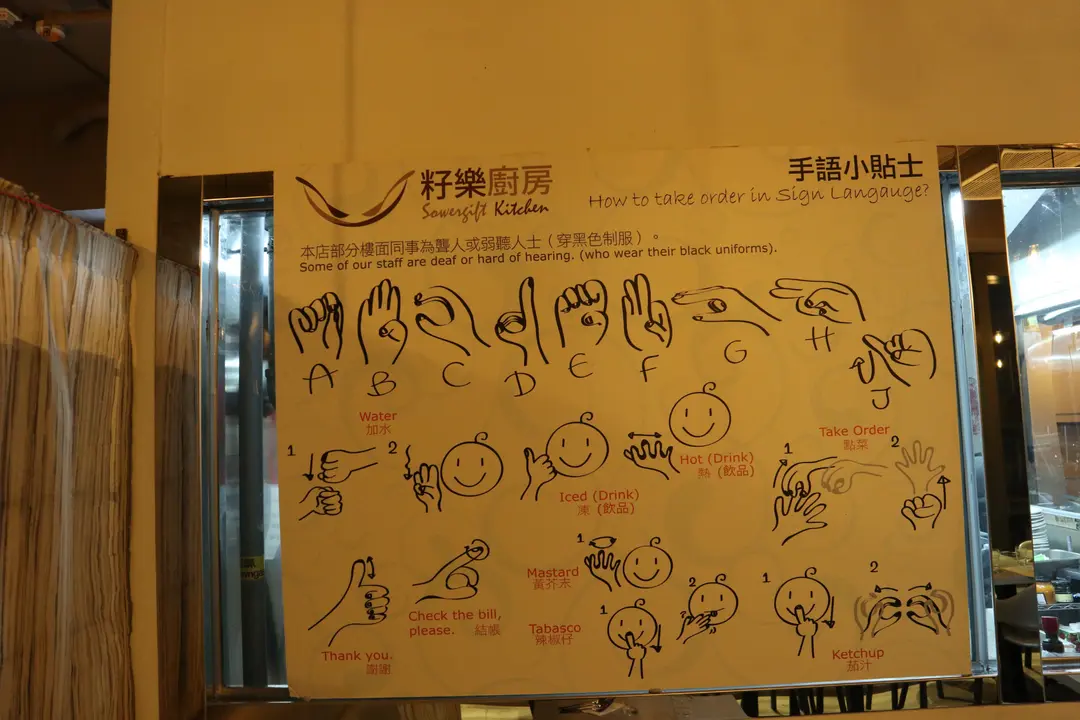 籽樂廚房
Sowergift Kitchen
手語小貼士
How to take order in Sign Langauge?
本店部分樓面同事為聾人或弱聽人士（穿黑色制服）。
Some of our staff are deaf or hard of hearing. (who wear their black uniforms).
A B C D E F G H J
Water
加水
1 2
Iced (Drink)
凍 (飲品)
Hot (Drink)
熱 (飲品)
Take Order
點菜
1 2
Thank you.
謝謝
Check the bill,
please. 結帳
Mastard
黃芥末
1
Tabasco
辣椒仔
1 2
Ketchup
茄汁
1 2